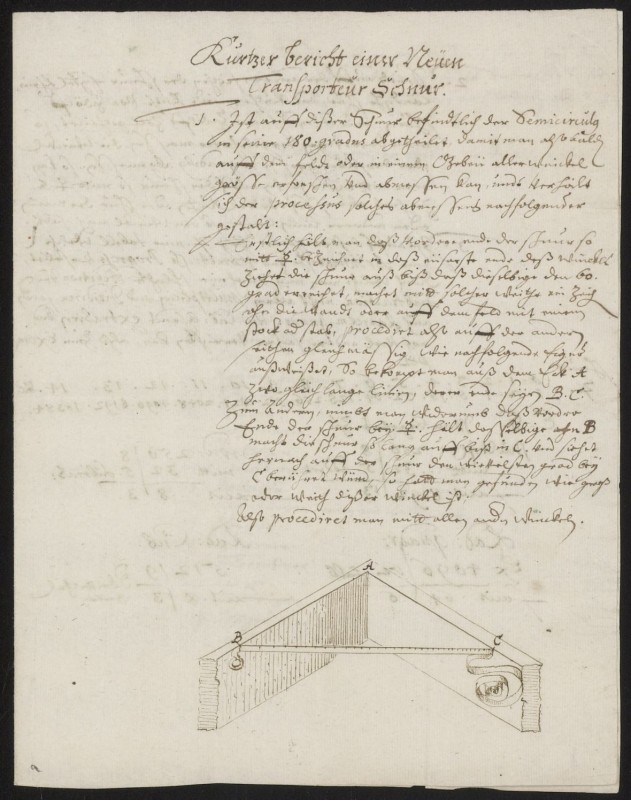 Kurtzer bericht einer Neüen
Transporteur Schnur.
1. Ist auff dißer Schnur befindtlich der Semicirculg
in seine 180. gradus abgetheilet, damit man also
auff dem feldt oder in einem Gebeü aller winckel
grösse erforschen und abmessen kan, undt verhält
sich der processus solches abmessens nachfolgender
gestalt:
Erstlich hält man daß vordere ende der schnur so
mitt bezeichnet in daß eüserste ende deß winckel
ziehet die schnur auß biß daß dieselbige den 60.
grad erreichet, machet mitt solcher weithe ein Zeich
ahn die wandt, oder auff dem feld mit einem
stock od stab, procedirt also auff der andern
seithen gleichmässig wie nachfolgende figur
außweißet, So bekompt man auß dem Eck A
zwo gleich lange linien, deren ende seyen B. C.
Zum Andern, nimbt man widerumb daß vordre
Ende der schnur bey hält dasselbige ahn B
macht die schnur so lang auff biß in C. und sieht
hernach auff der schnur den wievielsten grad bey
C berühret würd, so hatt man gefunden wie groß
oder weith dißer winckel ist.
Also procediret man mitt allen andn winckeln.
A
B
C